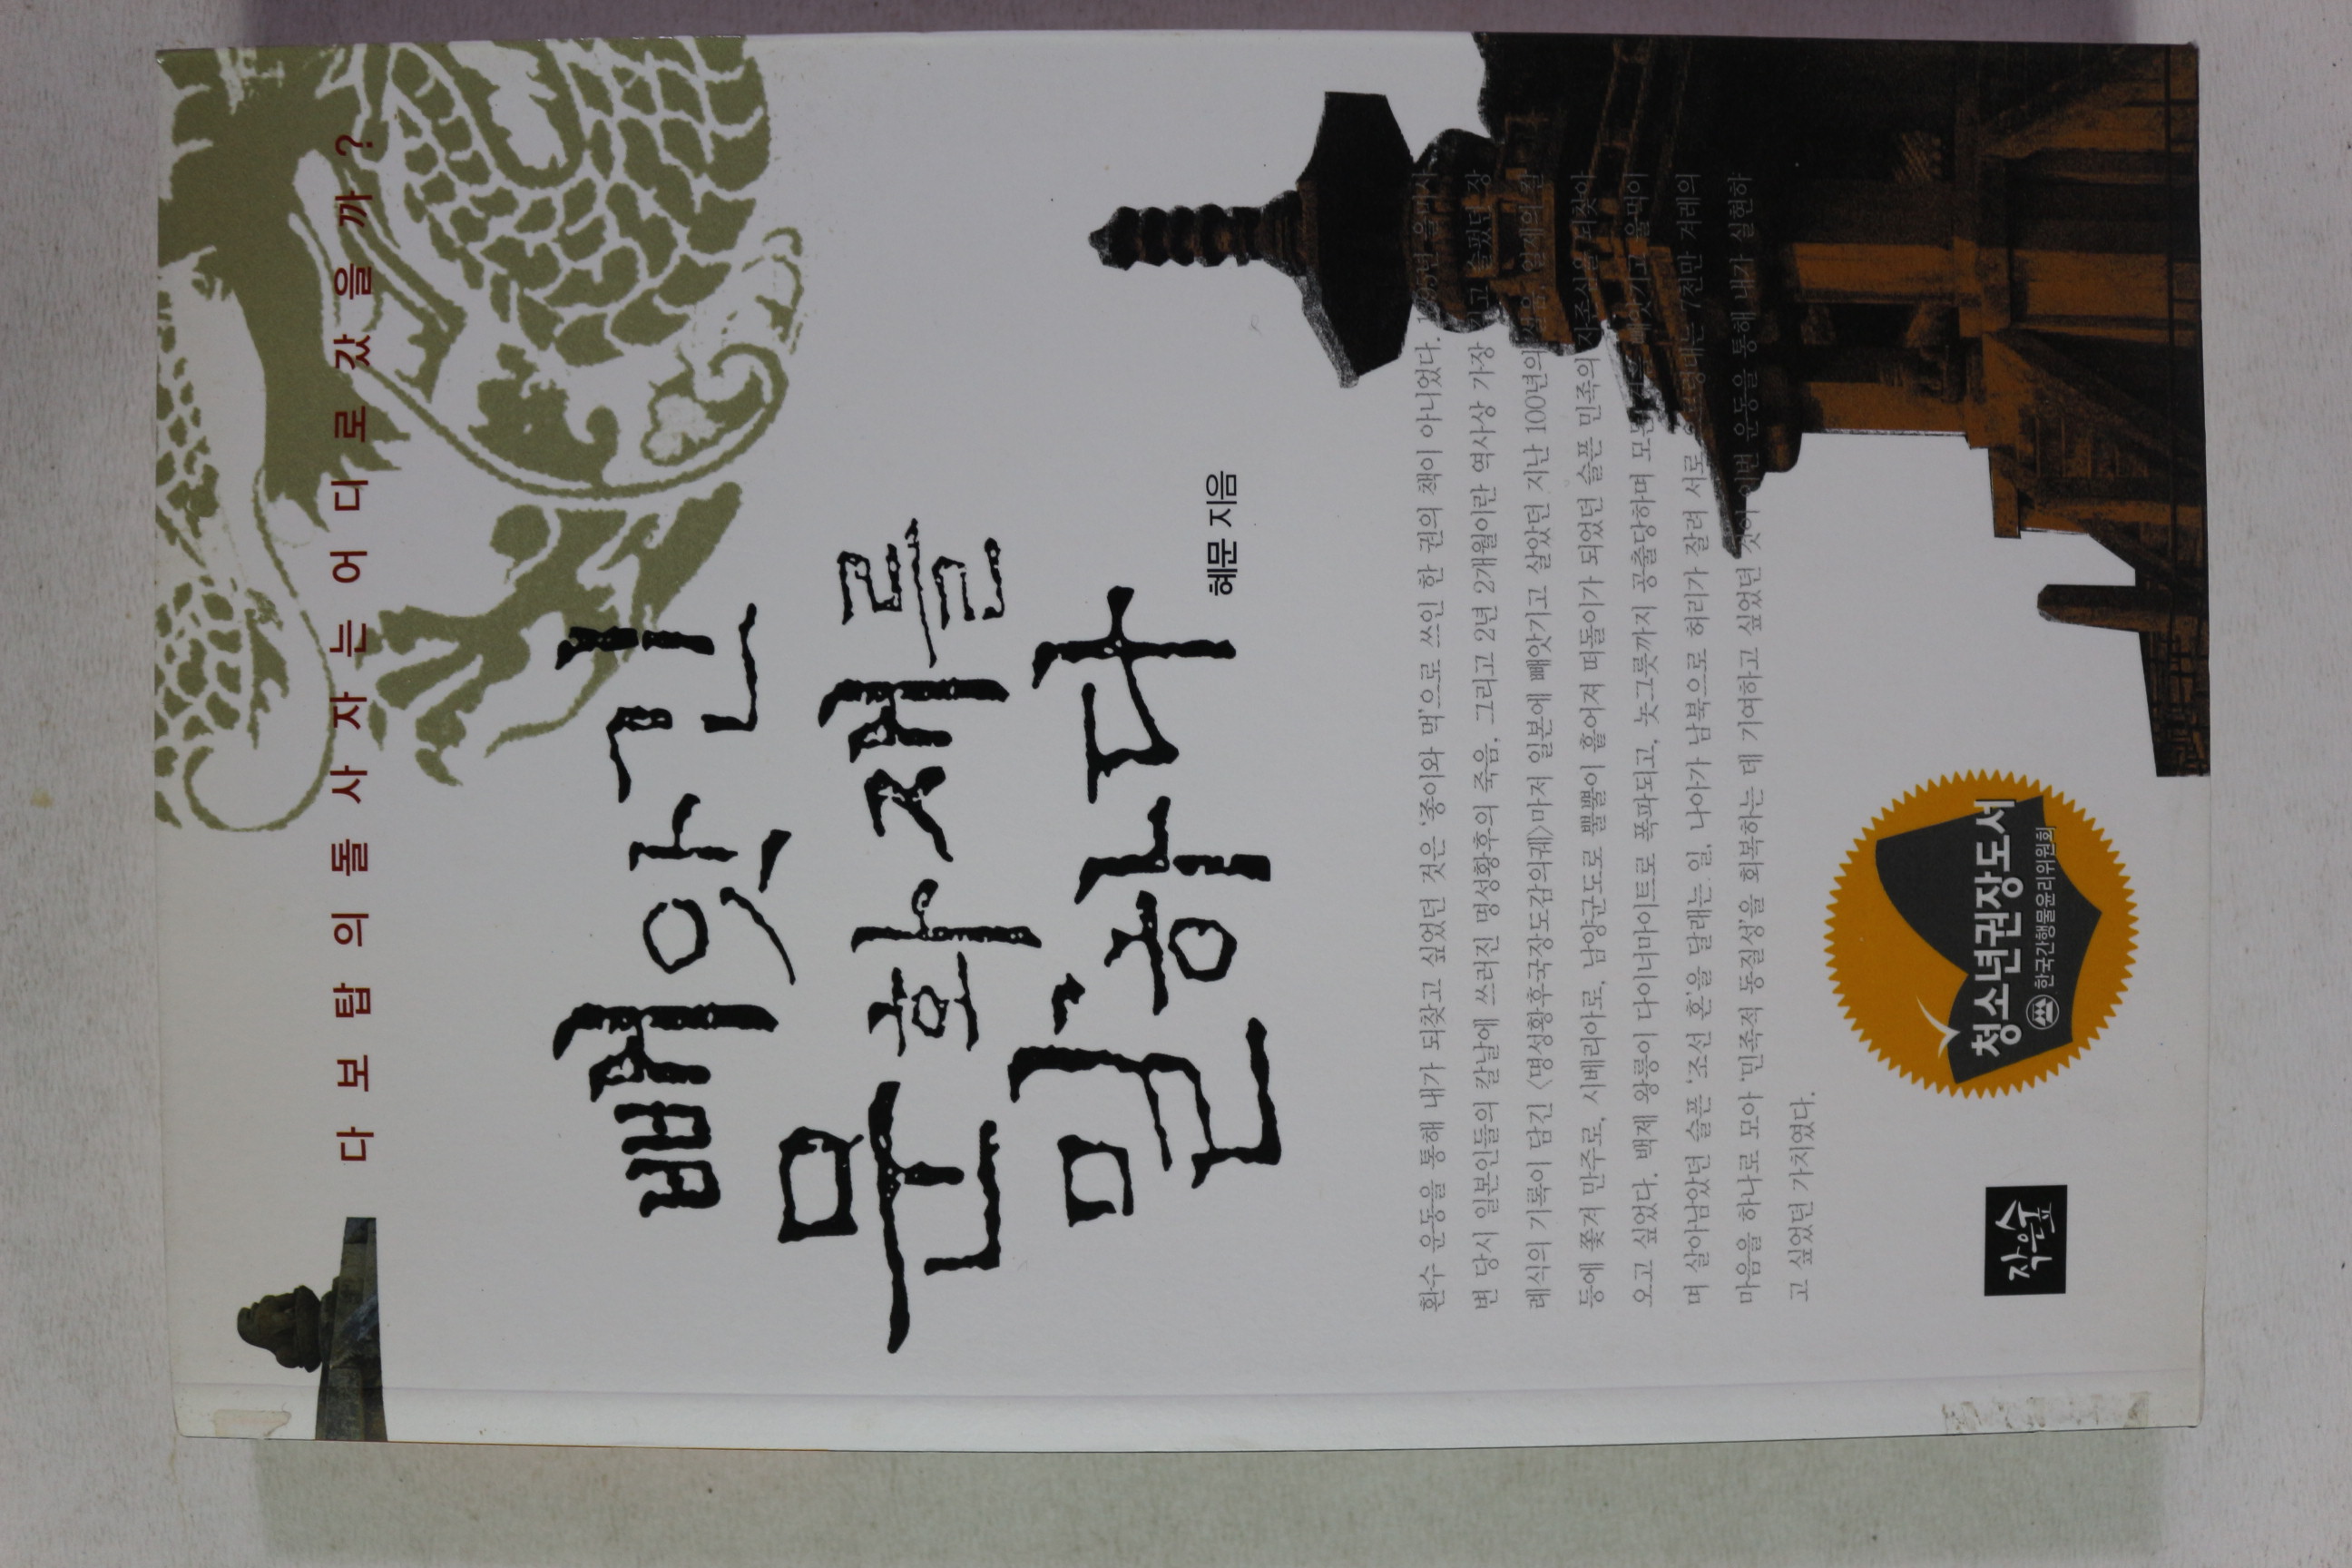 다보탑의 돌사자는 어디로 갔을까?
빼앗긴
문화재를
말하다
혜문 지음
환수 운동을 통해 내가 되찾고 싶었던 것은 '종이와 먹'으로 쓰인 한 권의 책이 아니었다. 을미사
변 당시 일본인들의 칼날에 쓰러진 명성황후의 죽음, 그리고 2년 2개월이란 역사상 가장 슬펐던 장
례식의 기록이 담긴 〈명성황후국장도감의궤〉마저 일본에 빼앗기고 살았던 지난 100년의 일제의
등에 쫓겨 만주로, 시베리아로, 남양군도로 뿔뿔이 흩어져 떠돌이가 되었던 슬픈 민족의 자존심을 되찾아
오고 싶었다. 백제 왕릉이 다이너마이트로 폭파되고, 놋그릇까지 공출당하며 빼앗기고 울먹이
며 살아남았던 슬픈 '조선 혼'을 달래는 일, 나아가 남북으로 허리가 잘려 서로 7천만 겨레의
마음을 하나로 모아 '민족적 동질성'을 회복하는 데 기여하고 싶었던 것이 이번 운동을 통해 내가 실현하
고 싶었던 가치였다.
청소년권장도서
한국간행물윤리위원회
작은숲